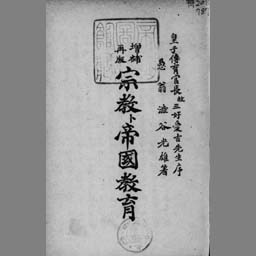 皇子傅育官長故三好愛吉先生序
愚翁 澁谷光雄著
増補
再版
宗教ト帝國教育